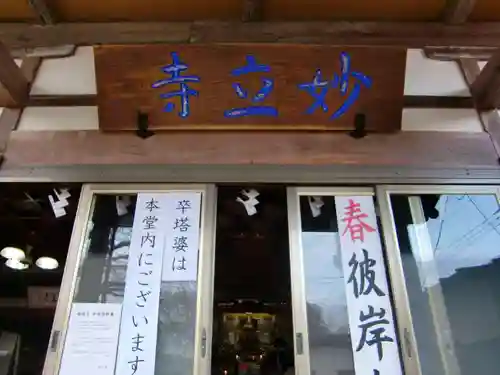 寺立妙
卒塔婆は
本堂内にございます
春彼岸